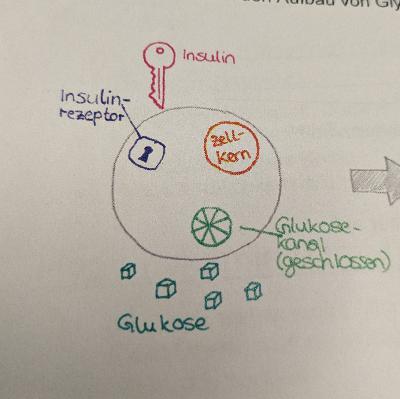 den Aufbau von Gly
Insulin
Insulin-
rezeptor
Zell-
kern
Glukose-
kanal
(geschlossen)
Glukose